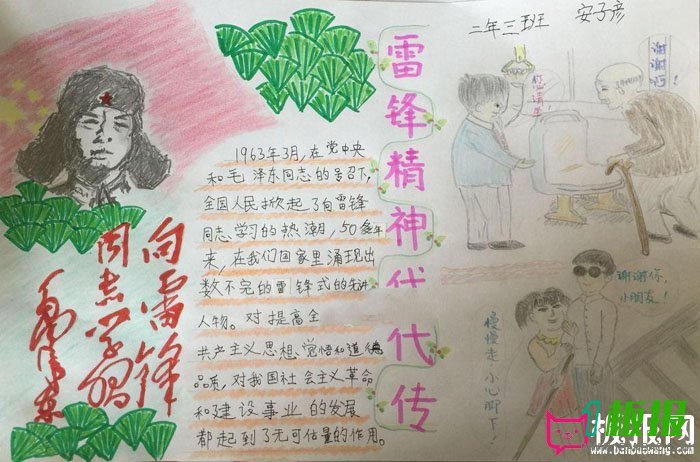 二年三班 安子彦
雷锋精神代代传
1963年3月,在党中央
和毛泽东同志的号召下,
全国人民掀起了向雷锋
同志学习的热潮,50多年
来,在我们国家里涌现出
数不完的雷锋式的先进
人物。对提高全
共产主义思想、觉悟和道德
品质,对我国社会主义革命
和建设事业的发展
都起到了无可估量的作用。
向雷锋
同志学习
毛泽东
谢谢您
谢谢你,
小朋友!
慢慢走,小心脚下!
板报网
www.banbaowang.com